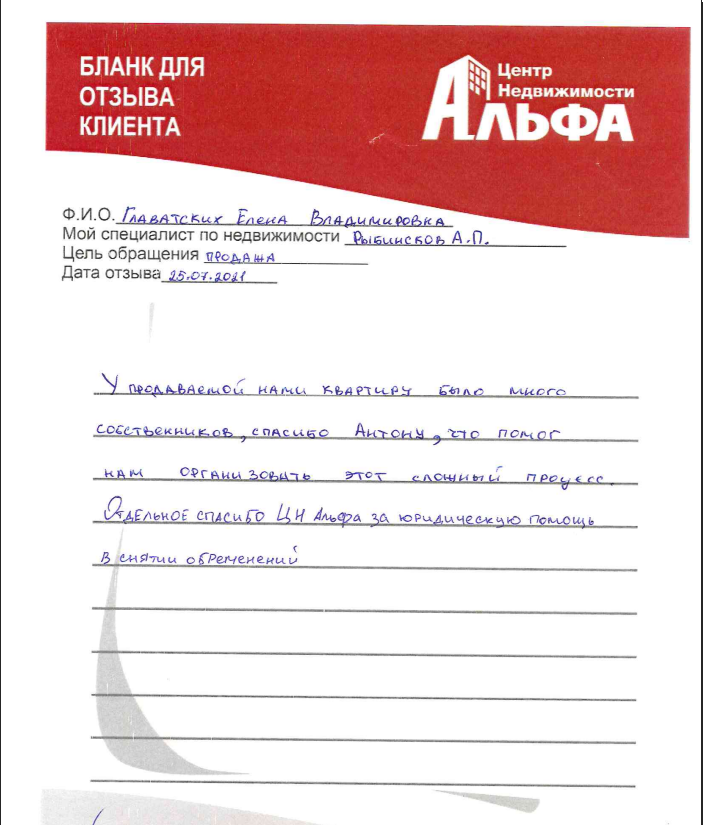 БЛАНК ДЛЯ
ОТЗЫВА
КЛИЕНТА
Центр
Недвижимости
АЛЬФА
Ф.И.О. Главатских Елена Владимировка
Мой специалист по недвижимости Рыбинсков А.П.
Цель обращения продажа
Дата отзыва 25.07.2021
У продаваемой нами квартиру было много
собственников, спасибо Антону, что помог
нам организовать этот сложный процесс.
Отдельное спасибо ЦН Альфа за юридическую помощь
в снятии обременений